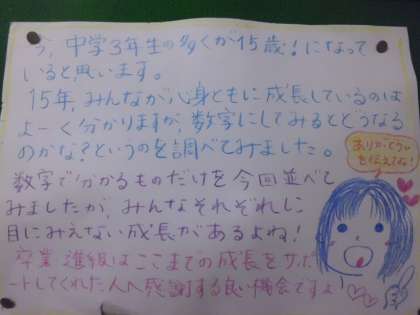 今、中学3年生の多くが15歳！になって
いると思います。
15年、みんなが心身ともに成長しているのは
よーく分かりますが、数字にしてみるとどうなる
のかな？というのを調べてみました。
数字で分かるものだけを今回並べて
みましたが、みんなそれぞれに
目にみえない成長があるよね！
卒業進級はここまでの成長をサポ
ートしてくれた人へ感謝する良い機会ですよ
ありがとうっ
を伝えてね！